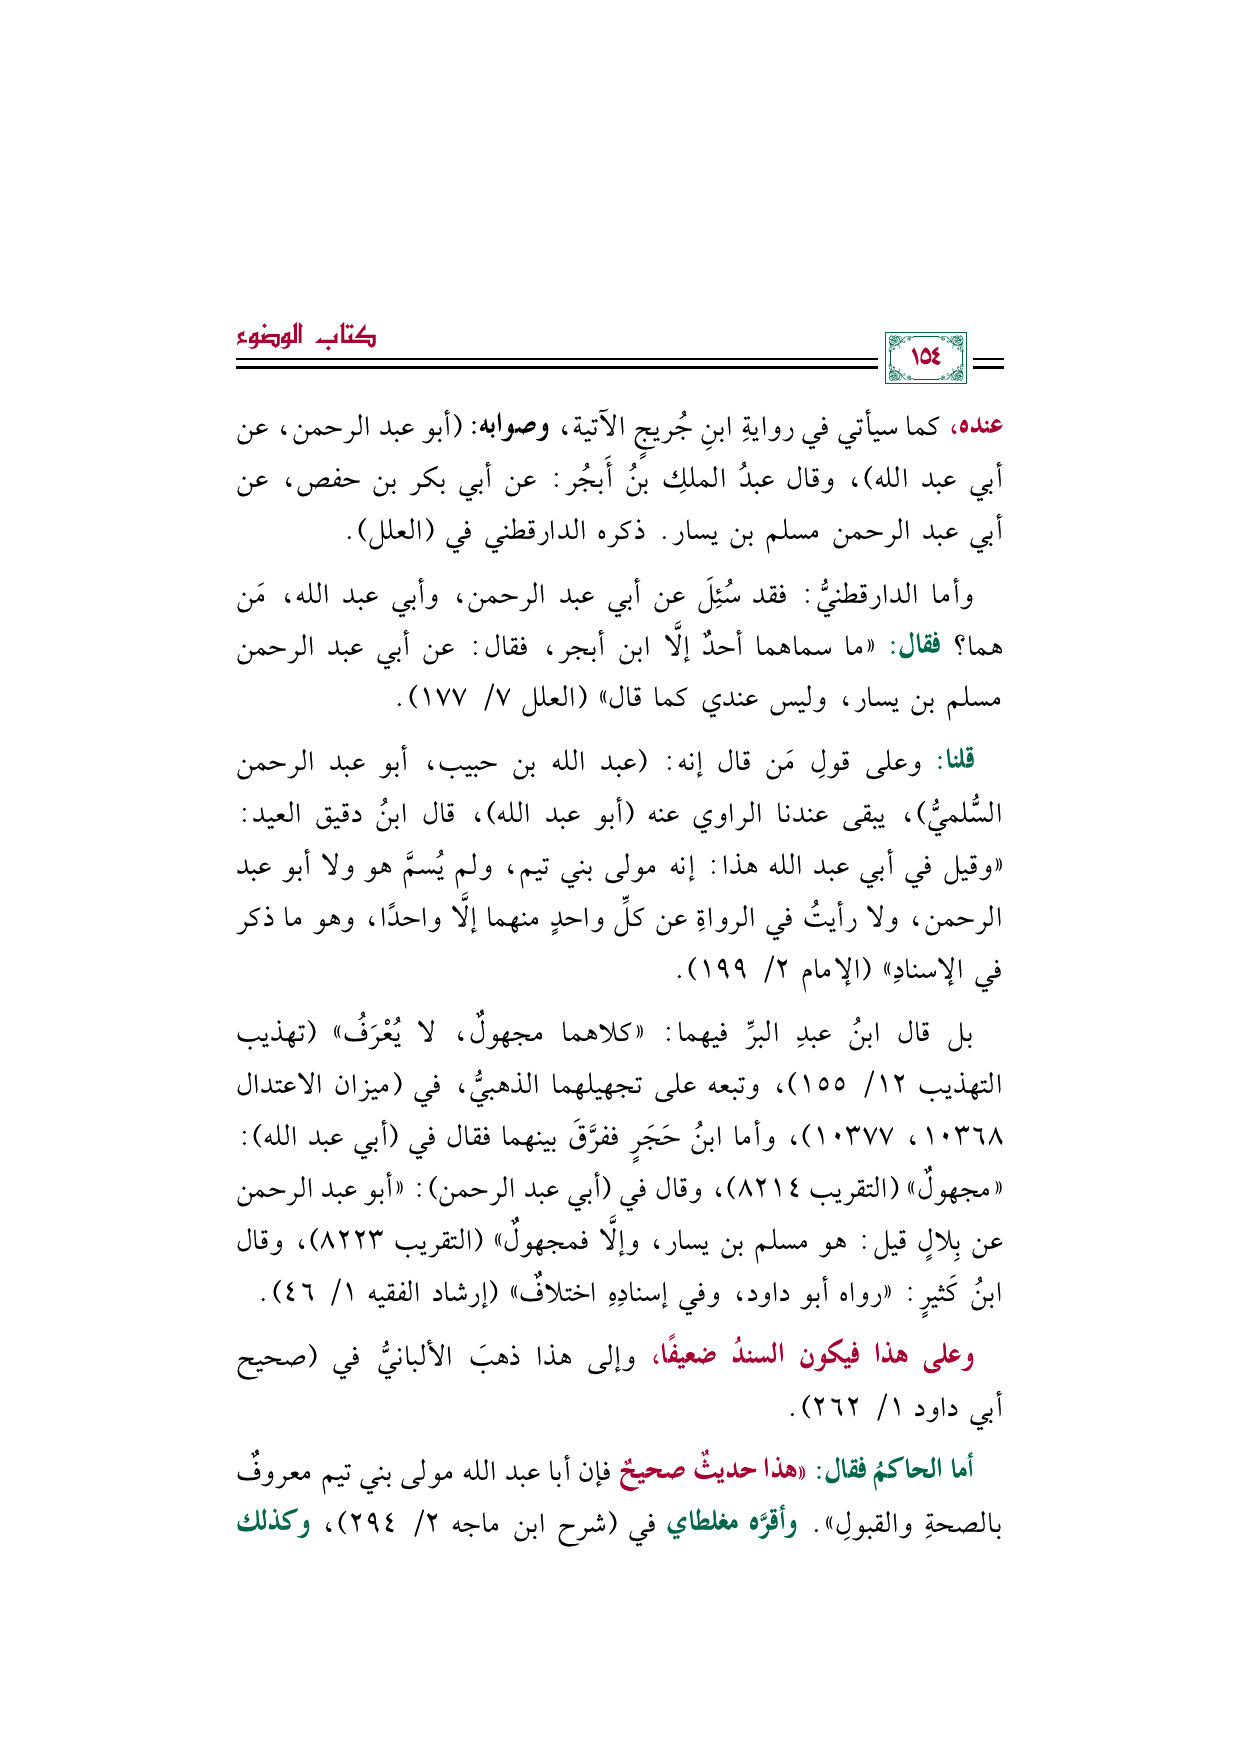 كتاب الوضوء
١٥٤
عنده، كما سيأتي في روايةِ ابنِ جُريجٍ الآتية، وصوابه: (أبو عبد الرحمن، عن
أبي عبد الله)، وقال عبدُ الملكِ بنُ أَبجُر: عن أبي بكر بن حفص، عن
أبي عبد الرحمن مسلم بن يسار. ذكره الدارقطني في (العلل).
وأما الدارقطنيُّ: فقد سُئِلَ عن أبي عبد الرحمن، وأبي عبد الله، مَن
هما؟ فقال: «ما سماهما أحدٌ إلَّا ابن أبجر، فقال: عن أبي عبد الرحمن
مسلم بن يسار، وليس عندي كما قال» (العلل ٧/ ١٧٧).
قلنا: وعلى قولِ مَن قال إنه: (عبد الله بن حبيب، أبو عبد الرحمن
السُّلميُّ)، يبقى عندنا الراوي عنه (أبو عبد الله)، قال ابنُ دقيق العيد:
«وقيل في أبي عبد الله هذا: إنه مولى بني تيم، ولم يُسمَّ هو ولا أبو عبد
الرحمن، ولا رأيتُ في الرواةِ عن كلِّ واحدٍ منهما إلَّا واحدًا، وهو ما ذكر
في الإسنادِ» (الإمام ٢/ ١٩٩).
بل قال ابنُ عبدِ البرِّ فيهما: «كلاهما مجهولٌ، لا يُعْرَفُ» (تهذيب
التهذيب ١٢/ ١٥٥)، وتبعه على تجهيلهما الذهبيُّ، في (ميزان الاعتدال
١٠٣٦٨، ١٠٣٧٧)، وأما ابنُ حَجَرٍ ففرَّقَ بينهما فقال في (أبي عبد الله):
«مجهولٌ» (التقريب ٨٢١٤)، وقال في (أبي عبد الرحمن): «أبو عبد الرحمن
عن بِلالٍ قيل: هو مسلم بن يسار، وإلَّا فمجهولٌ» (التقريب ٨٢٢٣)، وقال
ابنُ كَثيرٍ: «رواه أبو داود، وفي إسنادِهِ اختلافٌ» (إرشاد الفقيه ١/ ٤٦).
وعلى هذا فيكون السندُ ضعيفًا، وإلى هذا ذهبَ الألبانيُّ في (صحيح
أبي داود ١/ ٢٦٢).
أما الحاكمُ فقال: «هذا حديثٌ صحيحٌ فإن أبا عبد الله مولى بني تيم معروفٌ
بالصحةِ والقبولِ». وأقرَّه مغلطاي في (شرح ابن ماجه ٢/ ٢٩٤)، وكذلك